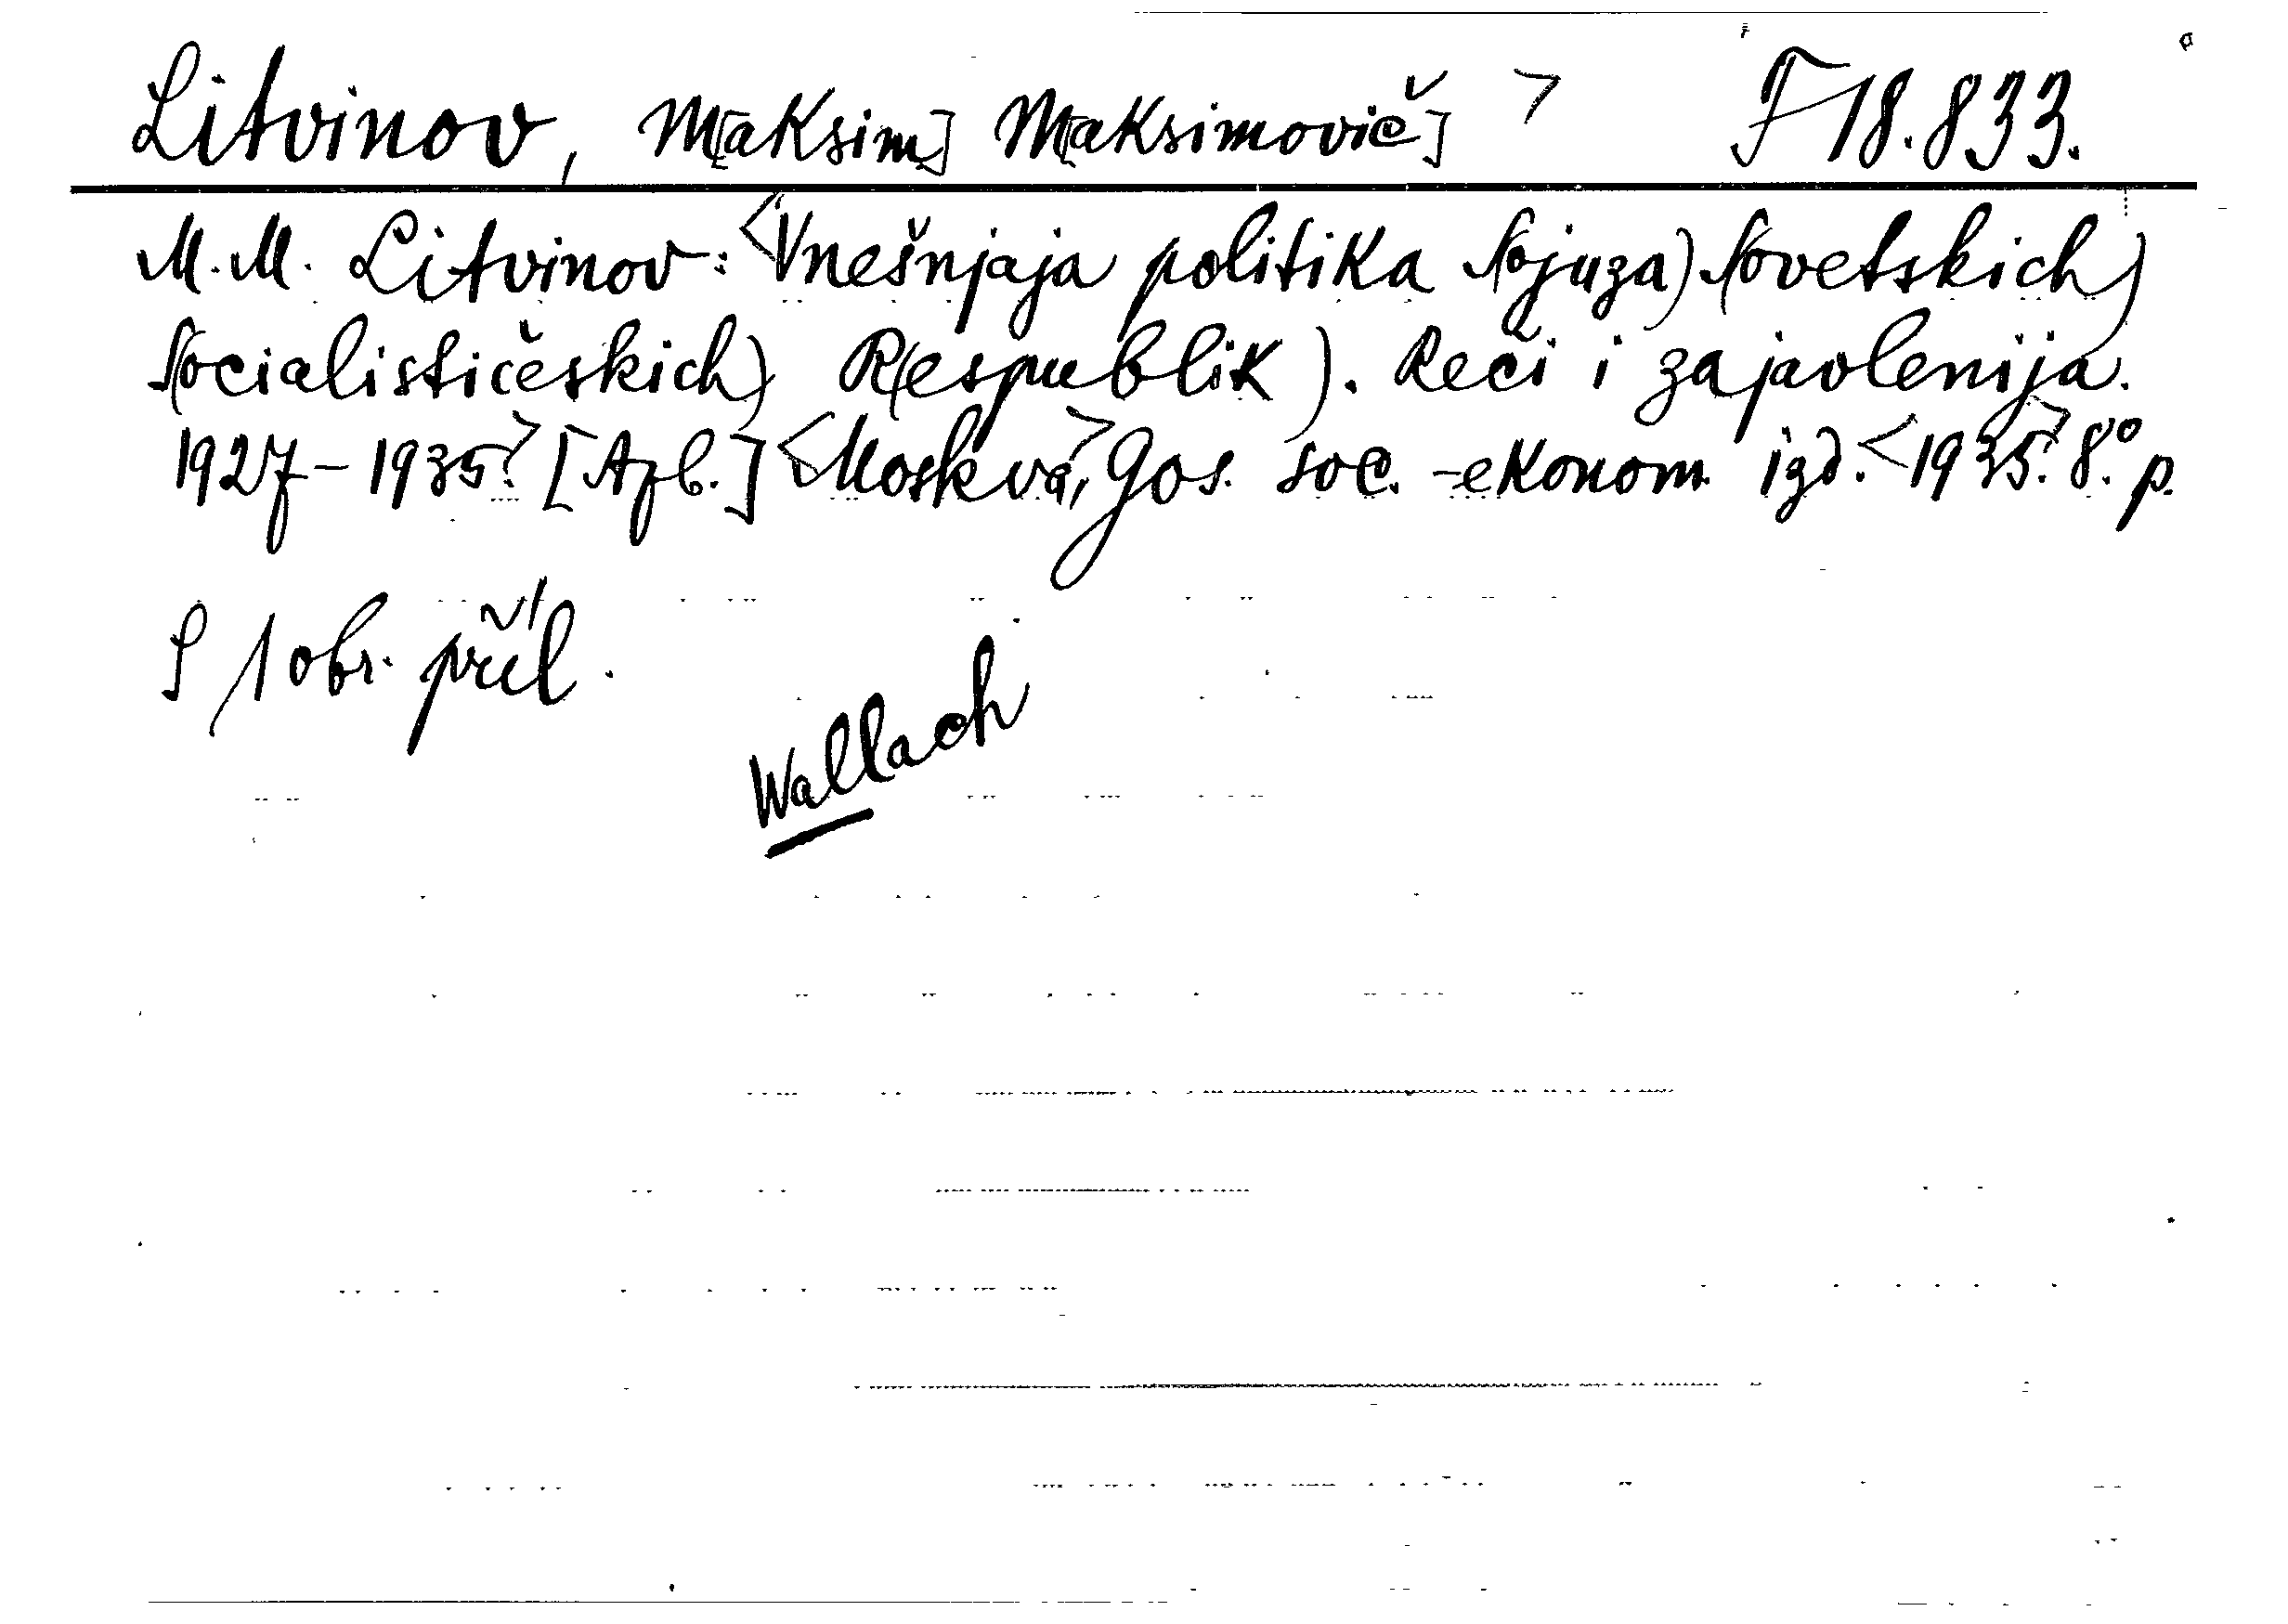 Litvinov, M[aksim] M[aksimovič] > F 18.833.
M. M. Litvinov: <Vnešnjaja politika S(ojuza) S(ovetskich)
S(ocialističeskich) R(espublik). Reči i zajavlenija.
1927-1935.> [Azb.] <Moskva,> Gos. soc.-ekonom. izd. <1935.> 8.° p.
S 1 obr. příl.
Wallach